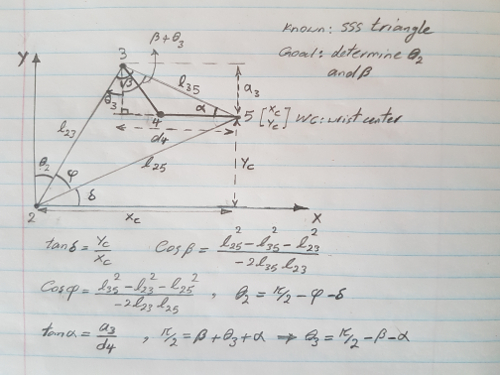 Known: SSS triangle
Goal: determine θ2
and β
y
β+θ3
3
l35
β
a3
θ3
α
4
5 [xc yc] WC: wrist center
l23
d4
l25
yc
θ2
φ
δ
2
xc
x
tanδ = yc/xc Cosβ = (l25² - l35² - l23²)/(-2l35 l23)
Cosφ = (l35² - l23² - l25²)/(-2l23 l25) , θ2 = π/2 - φ - δ
tanα = a3/d4 , π/2 = β + θ3 + α ⇒ θ3 = π/2 - β - α